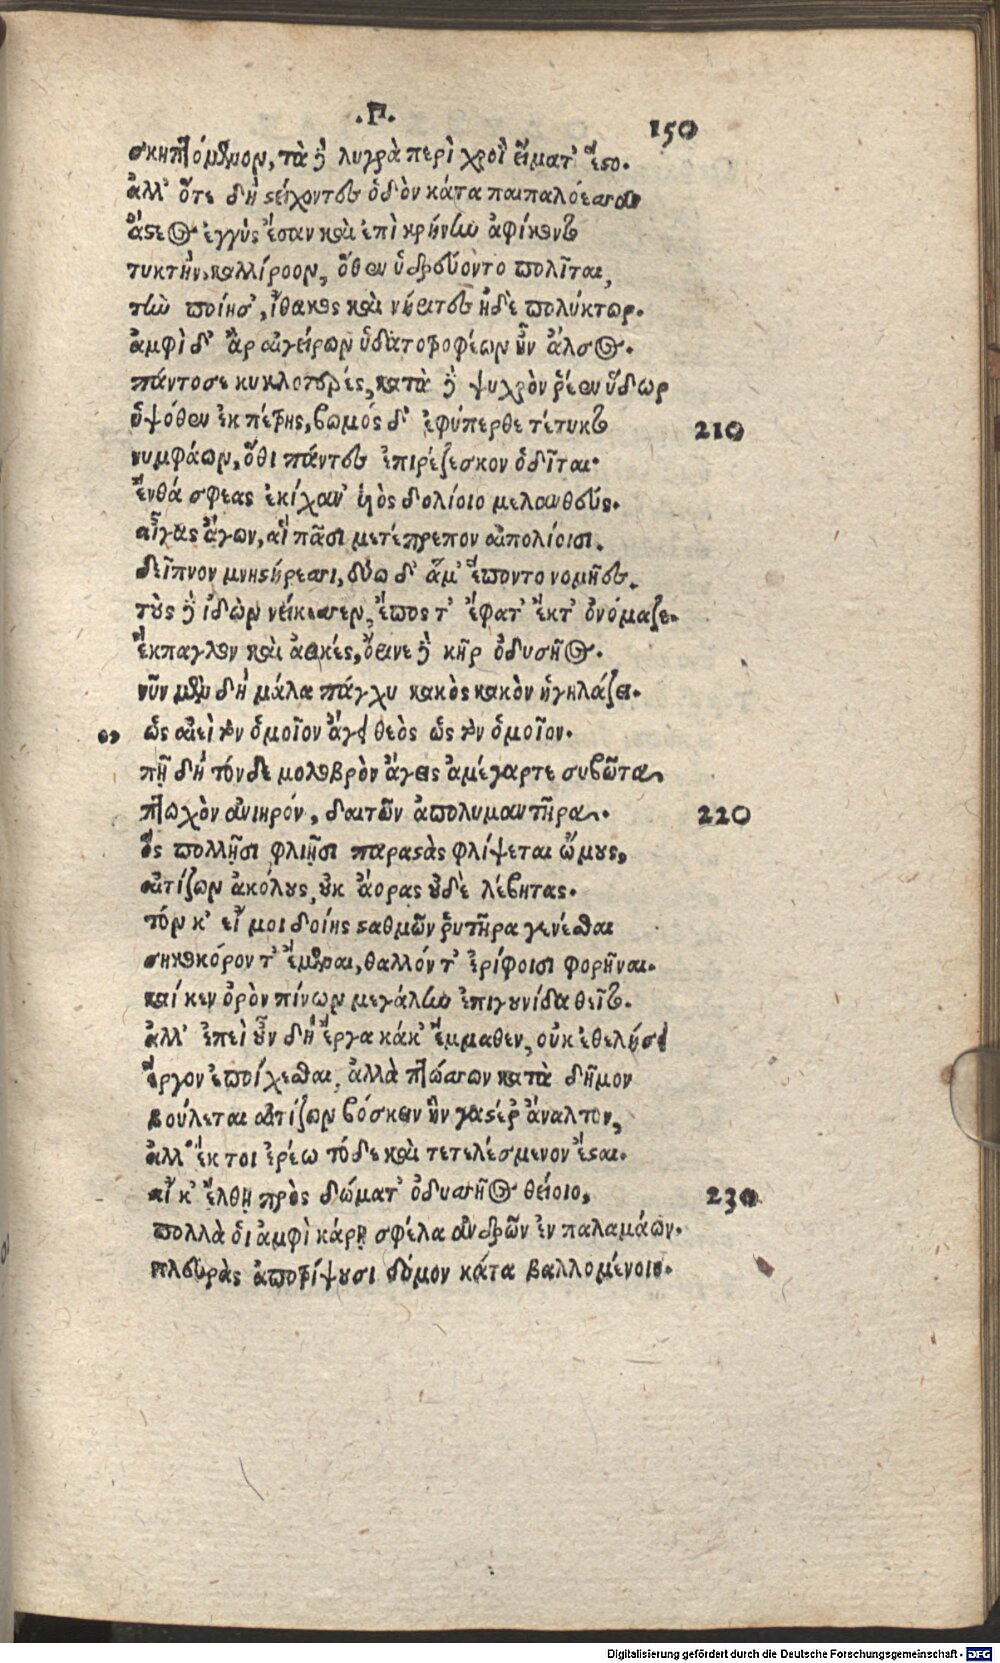 .Ρ. 150
σκηπτόμενον, τὰ δὲ λυγρὰ περὶ χροῒ εἵματ' ἕςο.
ἀλλ' ὅτε δὴ ςείχοντες ὁδὸν κάτα παιπαλόεσσαν
ἄςεος ἐγγὺς ἔσαν καὶ ἐπὶ κρήνην ἀφίκοντο
τυκτὴν καλλίροον, ὅθεν ὑδρεύοντο πολῖται,
τὴν ποίησ', ἴθακος καὶ νήριτος ἠδὲ πολύκτωρ.
ἀμφὶ δ' ἂρ αἰγείρων ὑδατοτροφέων ἦν ἄλσος.
πάντοσε κυκλοτερές, κατὰ δὲ ψυχρὸν ῥέεν ὕδωρ
ὑψόθεν ἐκ πέτρης, βωμός δ' ἐφύπερθε τέτυκτο 210
νυμφάων, ὅθι πάντες ἐπιρέζεσκον ὁδῖται·
ἔνθά σφεας ἐκίχαν' ὑὸς δολίοιο μελανθεύς.
αἶγας ἄγων, αἳ πᾶσι μετέπρεπον αἰπολίοισι.
δεῖπνον μνηςήρεσσι, δύω δ' ἅμ' ἕποντο νομῆες.
τοὺς δὲ ἰδὼν νείκεσσεν, ἔπος τ' ἔφατ' ἔκτ' ὀνόμαζε.
ἔκπαγλον καὶ ἀεικές, ὄρινε δὲ κῆρ ὀδυσῆος.
νῦν μὲν δὴ μάλα πάγχυ κακὸς κακὸν ἡγηλάζει.
,, ὡς αἰεὶ τὸν ὁμοῖον ἄγει θεὸς ὡς τὸν ὁμοῖον.
πῇ δὴ τόνδε μολοβρὸν ἄγεις ἀμέγαρτε συβῶτα,
πτωχὸν ἀνιηρόν, δαιτῶν ἀπολυμαντῆρα. 220
ὃς πολλῇσι φλιῇσι παραςὰς φλίψεται ὤμους,
αἰτίζων ἀκόλους, οὐκ ἄορας οὐδὲ λέβητας.
τόν κ' εἴ μοι δοίης ςαθμῶν ῥυτῆρα γενέσθαι
σηκοκόρον τ' ἔμεναι, θαλλόν τ' ἐρίφοισι φορῆναι.
καί κεν ὀρὸν πίνων μεγάλην ἐπιγουνίδα θεῖτο.
ἀλλ' ἐπεὶ οὖν δὴ ἔργα κάκ' ἔμμαθεν, οὐκ ἐθελήσει
ἔργον ἐποίχεσθαι, ἀλλὰ πτώσσων κατὰ δῆμον
βούλεται αἰτίζων βόσκειν ἣν γαςέρ' ἄναλτον,
ἀλλ' ἔκ τοι ἐρέω τόδε καὶ τετελέσμενον ἔςαι.
αἴ κ' ἔλθῃ πρὸς δώματ' ὀδυσσῆος θείοιο, 230
πολλὰ ὁι ἀμφὶ κάρῃ σφέλα ἀνδρῶν ἐν παλαμάων.
πλευρὰς ἀποτρίψουσι δόμον κάτα βαλλομένοιο.
Digitalisierung gefördert durch die Deutsche Forschungsgemeinschaft - DFG